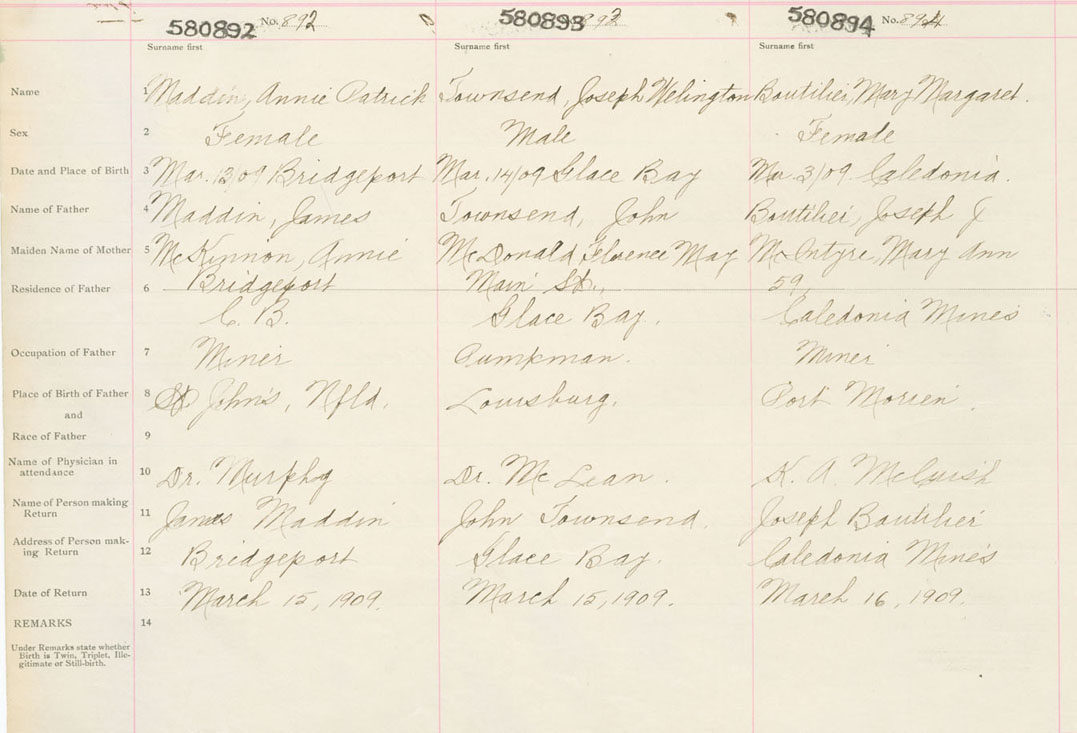 580892 No. 892 580893 893 580894 No. 894
Surname first Surname first Surname first
Name 1 Maddin, Annie Patrick Townsend, Joseph Welington Boutilier, Mary Margaret.
Sex 2 Female Male Female
Date and Place of Birth 3 Mar. 13/09 Bridgeport Mar. 14/09 Glace Bay Mar. 3/09 Caledonia.
Name of Father 4 Maddin, James Townsend, John Boutilier, Joseph J
Maiden Name of Mother 5 McKinnon, Annie McDonald, Florence May McIntyre, Mary Ann
Residence of Father 6 Bridgeport Main St., 59,
C. B. Glace Bay. Caledonia Mines
Occupation of Father 7 Miner Pumpman. Miner
Place of Birth of Father 8 St John's, Nfld. Louisburg. Port Morien.
and
Race of Father 9
Name of Physician in
attendance 10 Dr. Murphy Dr. McLean. K. A. McCuish
Name of Person making
Return 11 James Maddin John Townsend. Joseph Boutilier
Address of Person mak-
ing Return 12 Bridgeport Glace Bay. Caledonia Mines
Date of Return 13 March 15, 1909. March 15, 1909. March 16, 1909.
REMARKS 14
Under Remarks state whether
Birth is Twin, Triplet, Ille-
gitimate or Still-birth.